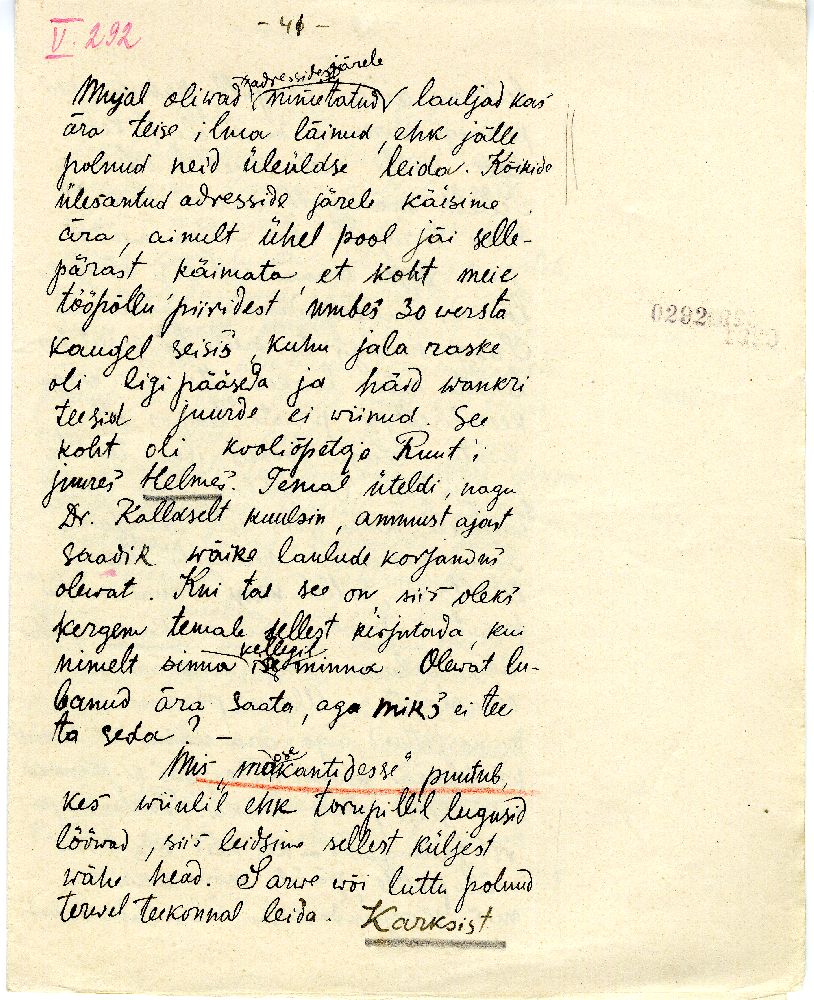 V. 292
- 41 -
adresside järele
Mujal oliwad nimetatud lauljad kas
ära teise ilma läinud, ehk jälle
polnud neid üleüldse leida. Kõikide
ülesantud adresside järele käisime
ära, ainult ühel pool jäi selle-
pärast käimata, et koht meie
tööpõllu piiridest umbes 30 wersta
kaugel seisis, kuhu jala raske
oli ligi pääseda ja häid wankri
teesid juurde ei wiinud. See
koht oli kooliõpetaja Ruut'i
juures Helmes. Temal üteldi, nagu
Dr. Kallaselt kuulsin, ammust ajast
saadik wäike laulude korjandus
olewat. Kui tal see on siis oleks
kergem temale sellest kirjutada, kui
kellegil
nimelt sinna minna. Olewat lu-
banud ära saata, aga miks ei tee
ta seda? -
Mis "mosekantidesse" puutub,
kes wiiulil ehk torupillil lugusid
lööwad, siis leidsime sellest küljest
wähe head. Sarwe wõi luttu polnud
terwel teekonnal leida. Karksist
0292